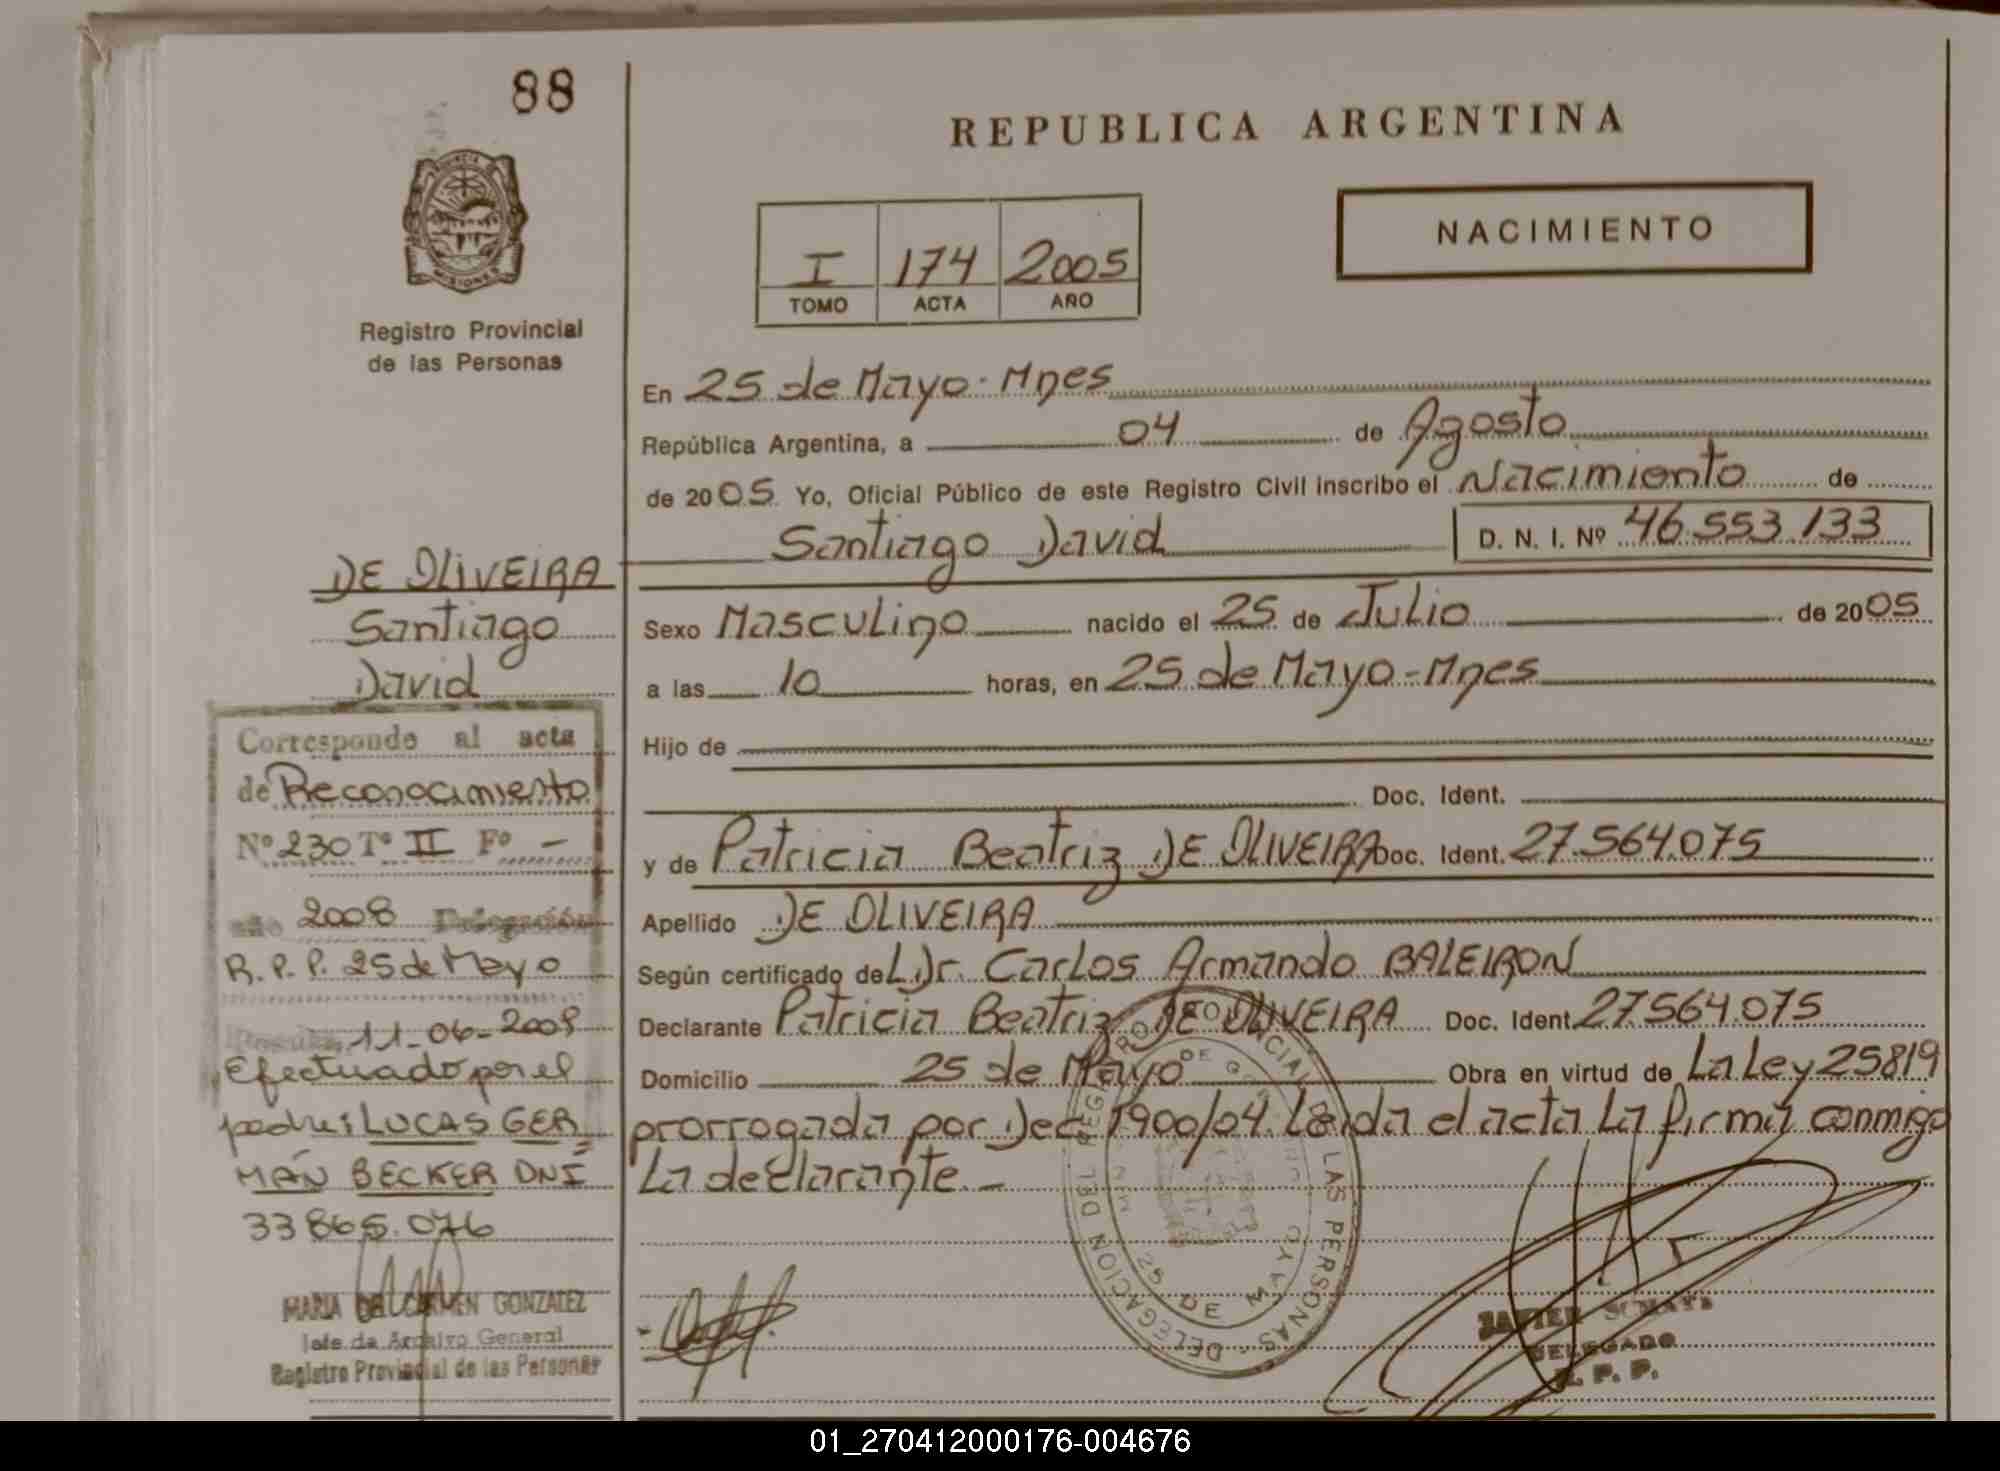 88
REPUBLICA ARGENTINA
PROVINCIA DE
MISIONES
Registro Provincial
de las Personas
NACIMIENTO
I 174 2005
TOMO ACTA AÑO
En 25 de Mayo-Mnes
República Argentina, a 04 de Agosto
de 2005. Yo, Oficial Público de este Registro Civil inscribo el Nacimiento de
Santiago David D. N. I. Nº 46.553.133
Sexo Masculino nacido el 25 de Julio de 2005
a las 10 horas, en 25 de Mayo-Mnes
Hijo de
Doc. Ident.
y de Patricia Beatriz DE OLIVEIRA Doc. Ident. 27.564.075
Apellido DE OLIVEIRA
Según certificado del Dr. Carlos Armando BALEIRON
Declarante Patricia Beatriz DE OLIVEIRA Doc. Ident. 27.564.075
Domicilio 25 de Mayo Obra en virtud de La Ley 25819
prorrogada por Dec. 1900/04. Leida el acta La firma conmigo
La declarante.-
DE OLIVEIRA
Santiago
David
Corresponde al acta
de Reconocimiento
Nº 230 Tº II Fº -
año 2008 Delegación
R.P.P. 25 de Mayo
11-06-2008
Efectuado por el
padre: LUCAS GER
MÁN BECKER DNI
33865.076
MARIA DEL CARMEN GONZALEZ
Jefe de Archivo General
Registro Provincial de las Personas
DELEGACION DEL REGISTRO PROVINCIAL DE LAS PERSONAS
25 DE MAYO
DELEGADO
R. P. P.
01_270412000176-004676